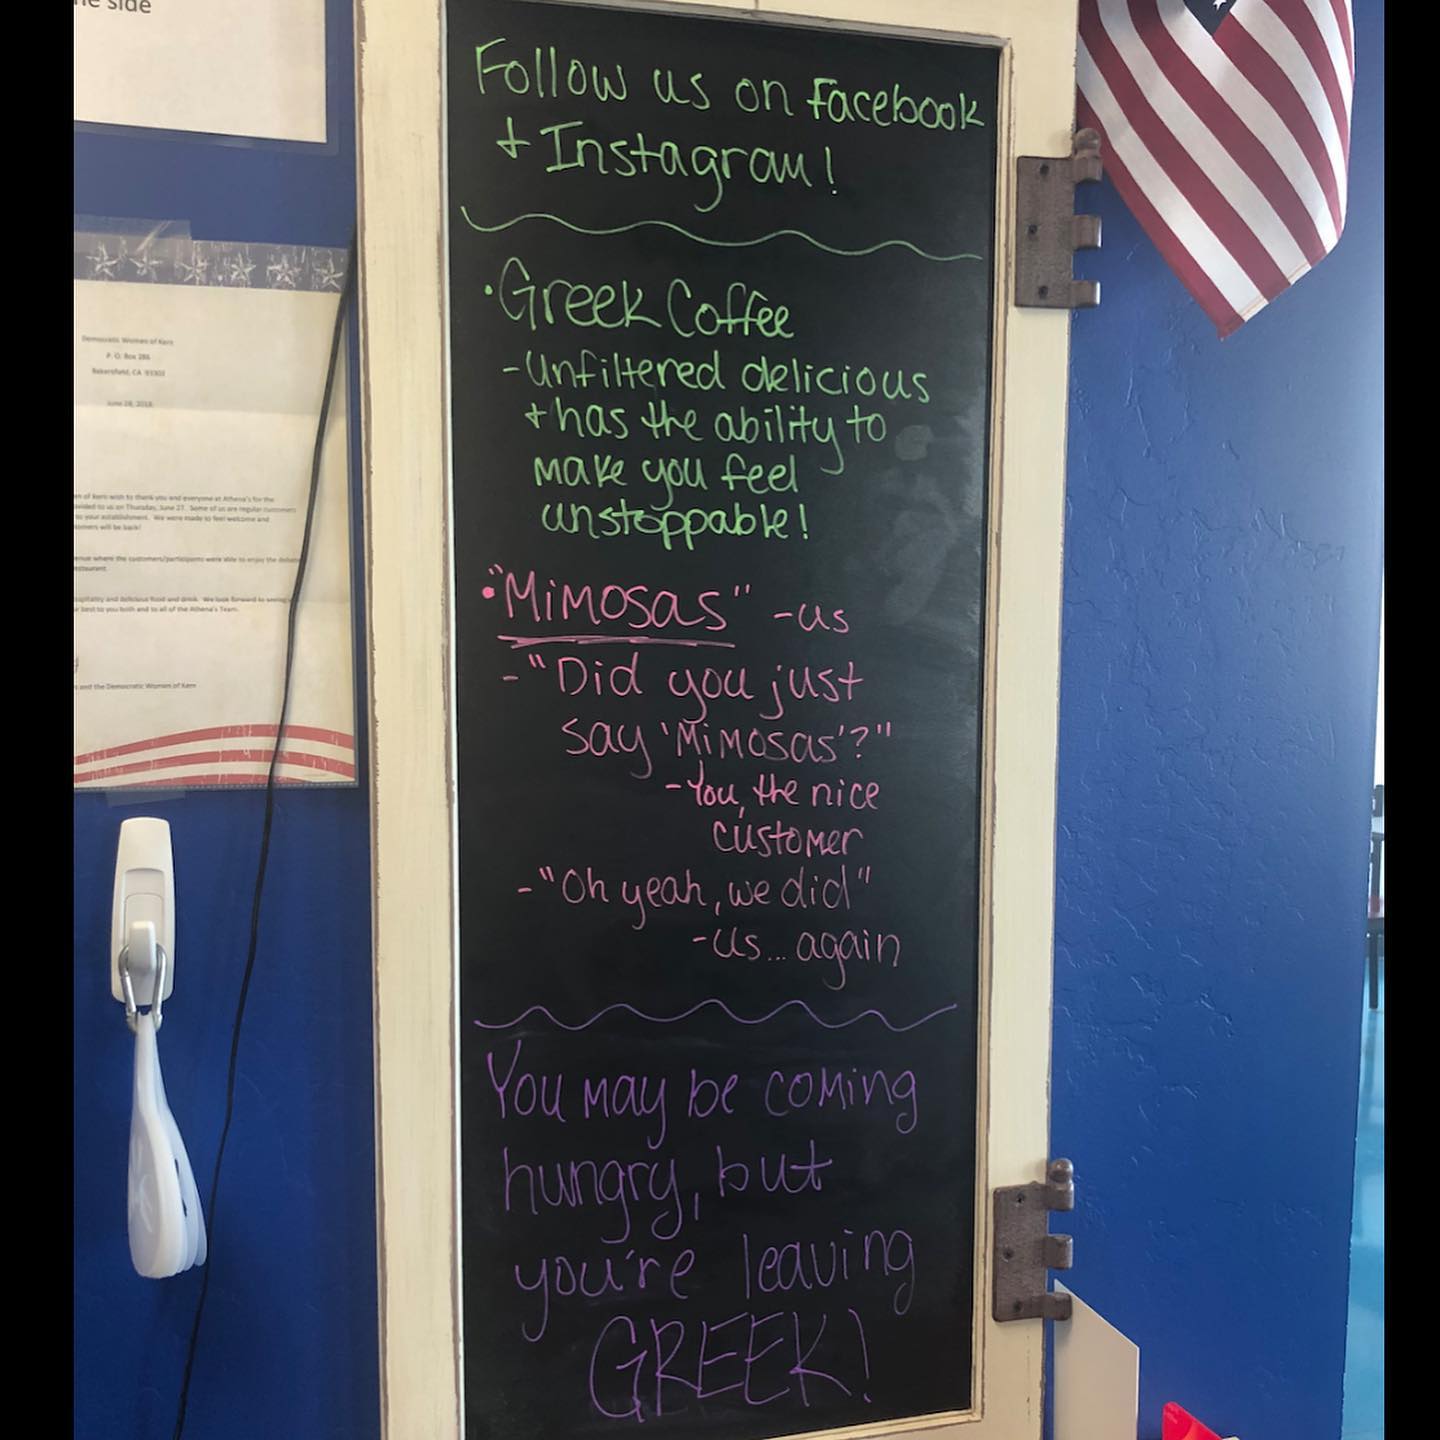 he side
Democratic Women of Kern
P. O. Box 286
Bakersfield, CA 93302
June 28, 2018
en of Kern wish to thank you and everyone at Athena's for the
ovided to us on Thursday, June 27. Some of us are regular customers
to your establishment. We were made to feel welcome and
stomers will be back!
enue where the customers/participants were able to enjoy the debate
restaurant.
spitality and delicious food and drink. We look forward to seeing
r best to you both and to all of the Athena's Team.
s and the Democratic Women of Kern
Follow us on Facebook
+ Instagram!
• Greek Coffee
- Unfiltered delicious
+ has the ability to
make you feel
unstoppable!
• "Mimosas" - us
- "Did you just
say 'Mimosas'?"
- You, the nice
customer
- "Oh yeah, we did"
- us... again
You may be coming
hungry, but
you're leaving
GREEK!